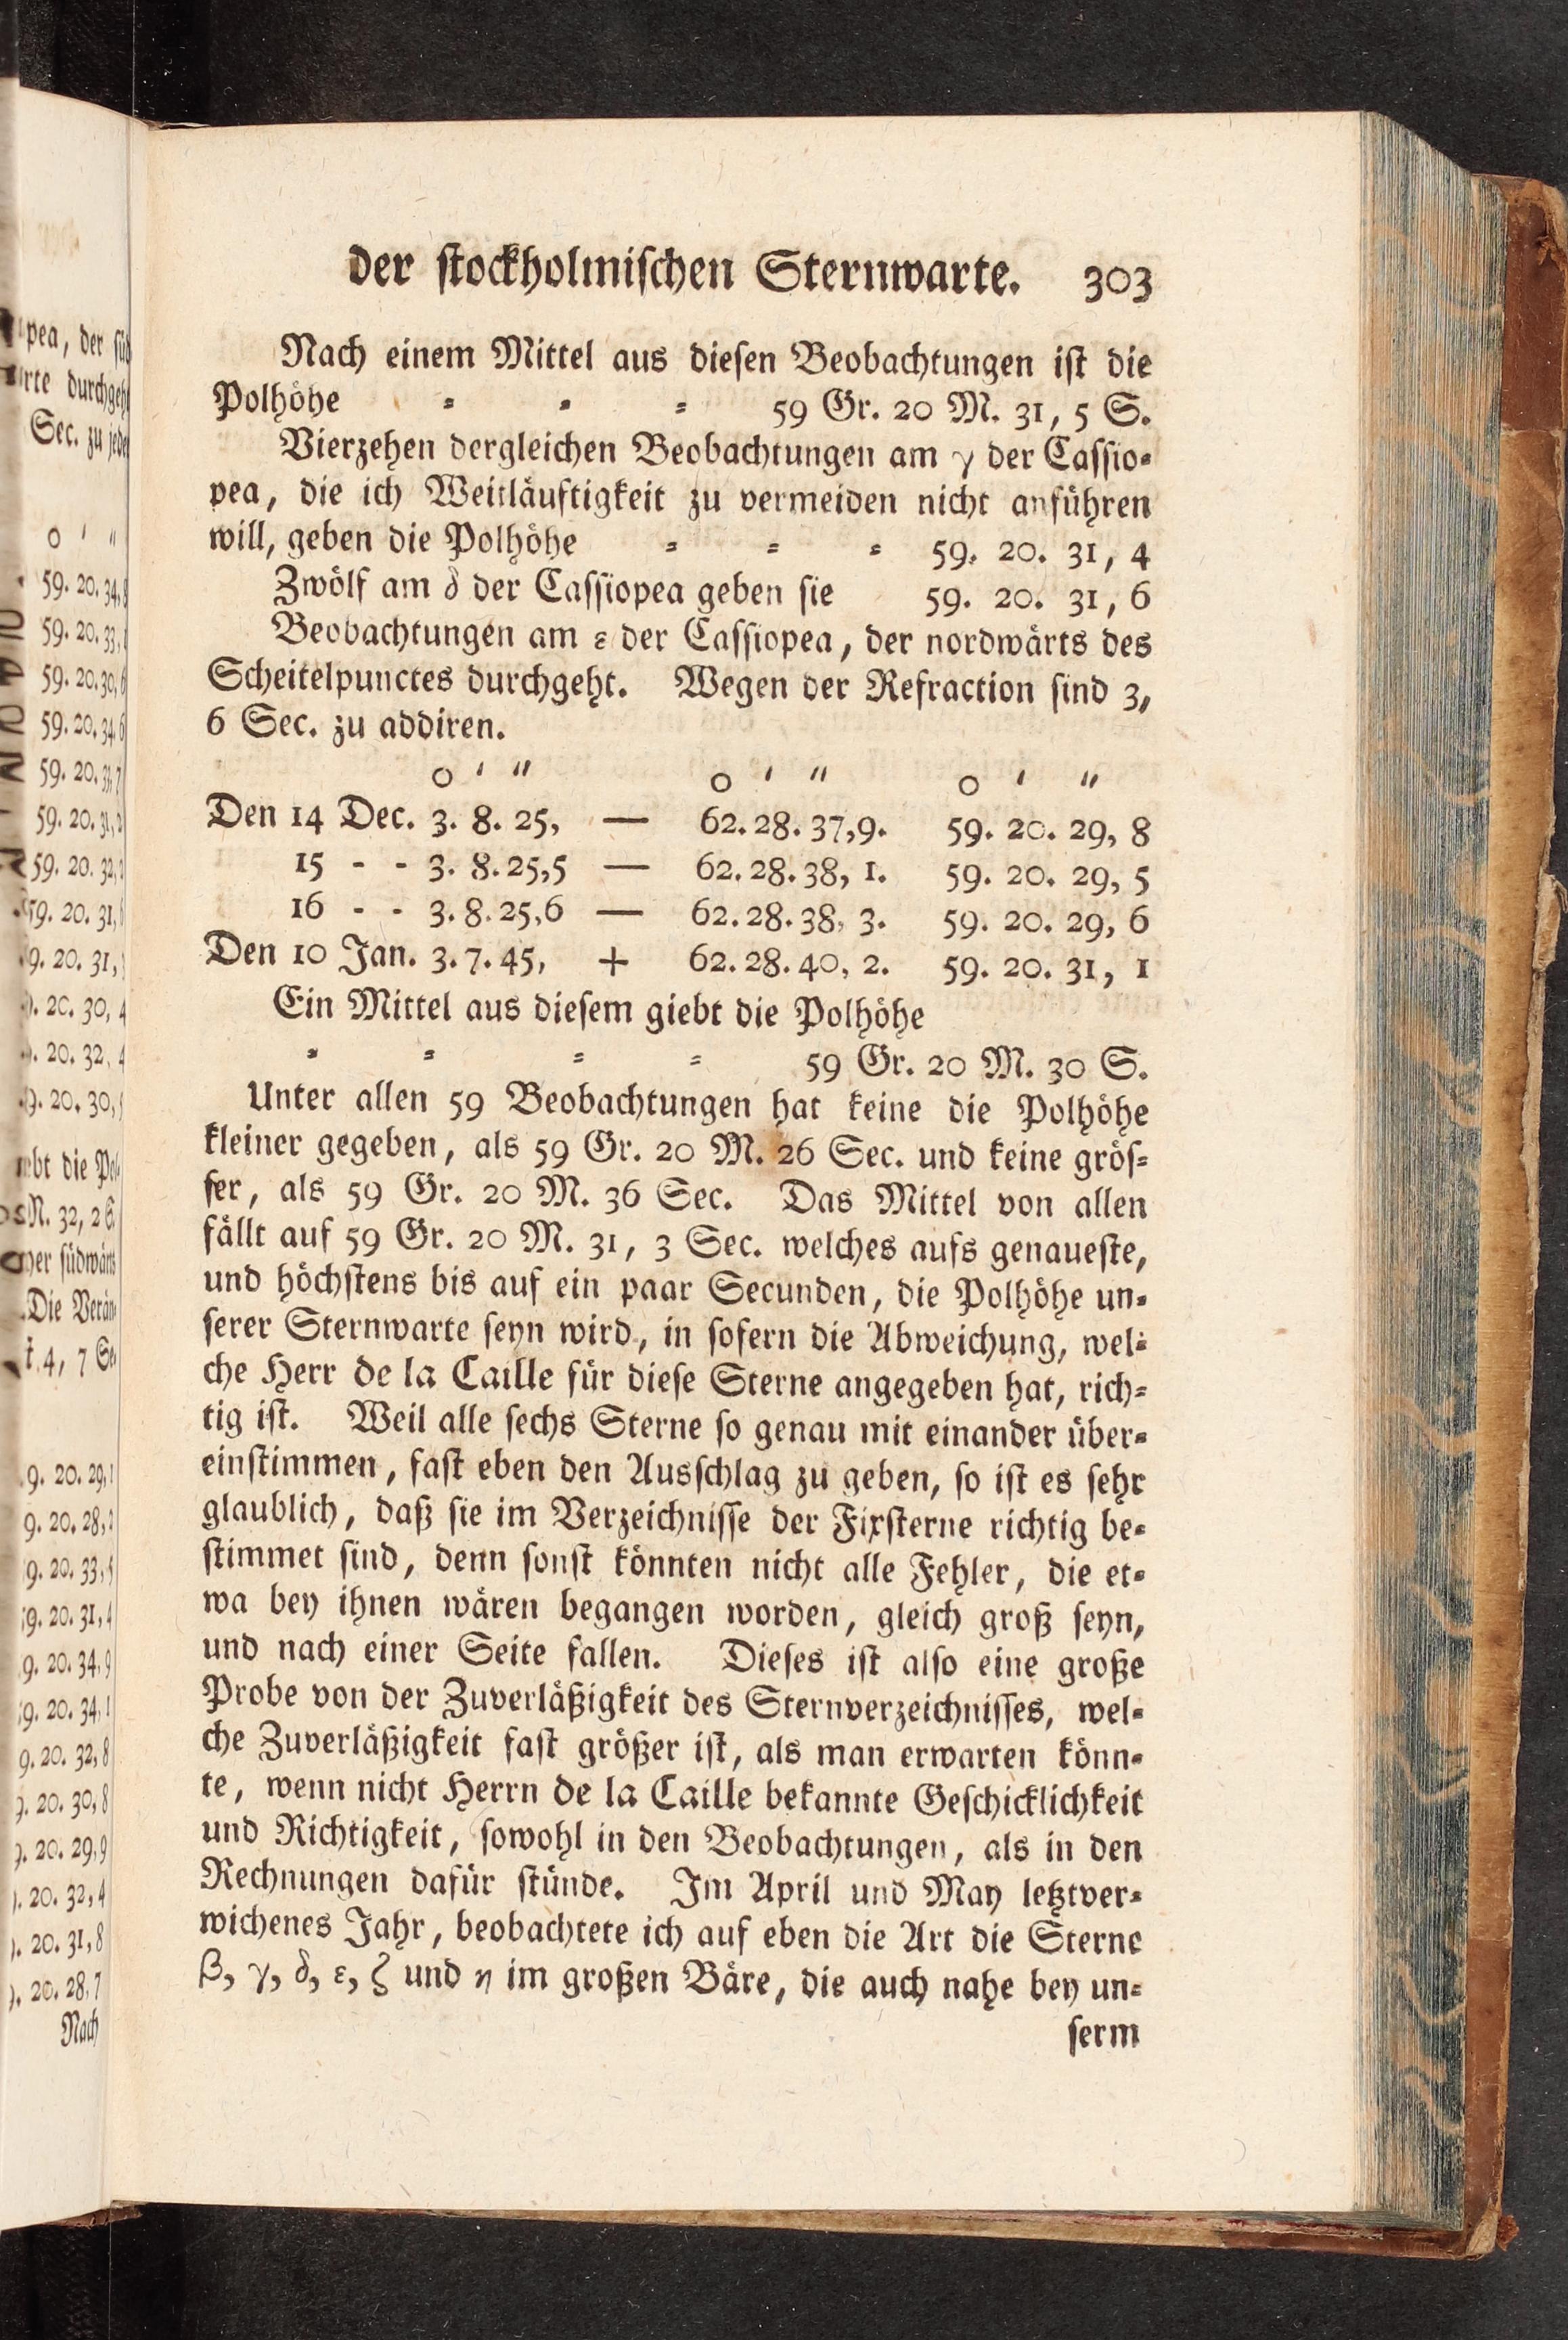 der stockholmischen Sternwarte. 303
Nach einem Mittel aus diesen Beobachtungen ist die
Polhöhe = = = 59 Gr. 20 M. 31, 5 S.
Vierzehen dergleichen Beobachtungen am γ der Cassio=
pea, die ich Weitläuftigkeit zu vermeiden nicht anführen
will, geben die Polhöhe = = = 59. 20. 31, 4
Zwölf am δ der Cassiopea geben sie 59. 20. 31, 6
Beobachtungen am ε der Cassiopea, der nordwärts des
Scheitelpunctes durchgeht. Wegen der Refraction sind 3,
6 Sec. zu addiren.
o ′ ″ o ′ ″ o ′ ″
Den 14 Dec. 3. 8. 25, — 62. 28. 37,9. 59. 20. 29, 8
15 - - 3. 8. 25,5 — 62. 28. 38, 1. 59. 20. 29, 5
16 - - 3. 8. 25,6 — 62. 28. 38, 3. 59. 20. 29, 6
Den 10 Jan. 3. 7. 45, + 62. 28. 40, 2. 59. 20. 31, 1
Ein Mittel aus diesem giebt die Polhöhe
= = = = 59 Gr. 20 M. 30 S.
Unter allen 59 Beobachtungen hat keine die Polhöhe
kleiner gegeben, als 59 Gr. 20 M. 26 Sec. und keine grös=
ser, als 59 Gr. 20 M. 36 Sec. Das Mittel von allen
fällt auf 59 Gr. 20 M. 31, 3 Sec. welches aufs genaueste,
und höchstens bis auf ein paar Secunden, die Polhöhe un=
serer Sternwarte seyn wird, in sofern die Abweichung, wel=
che Herr de la Caille für diese Sterne angegeben hat, rich=
tig ist. Weil alle sechs Sterne so genau mit einander über=
einstimmen, fast eben den Ausschlag zu geben, so ist es sehr
glaublich, daß sie im Verzeichnisse der Fixsterne richtig be=
stimmet sind, denn sonst könnten nicht alle Fehler, die et=
wa bey ihnen wären begangen worden, gleich groß seyn,
und nach einer Seite fallen. Dieses ist also eine große
Probe von der Zuverläßigkeit des Sternverzeichnisses, wel=
che Zuverläßigkeit fast größer ist, als man erwarten könn=
te, wenn nicht Herrn de la Caille bekannte Geschicklichkeit
und Richtigkeit, sowohl in den Beobachtungen, als in den
Rechnungen dafür stünde. Im April und May letztver=
wichenes Jahr, beobachtete ich auf eben die Art die Sterne
β, γ, δ, ε, ζ und η im großen Bäre, die auch nahe bey un=
serm